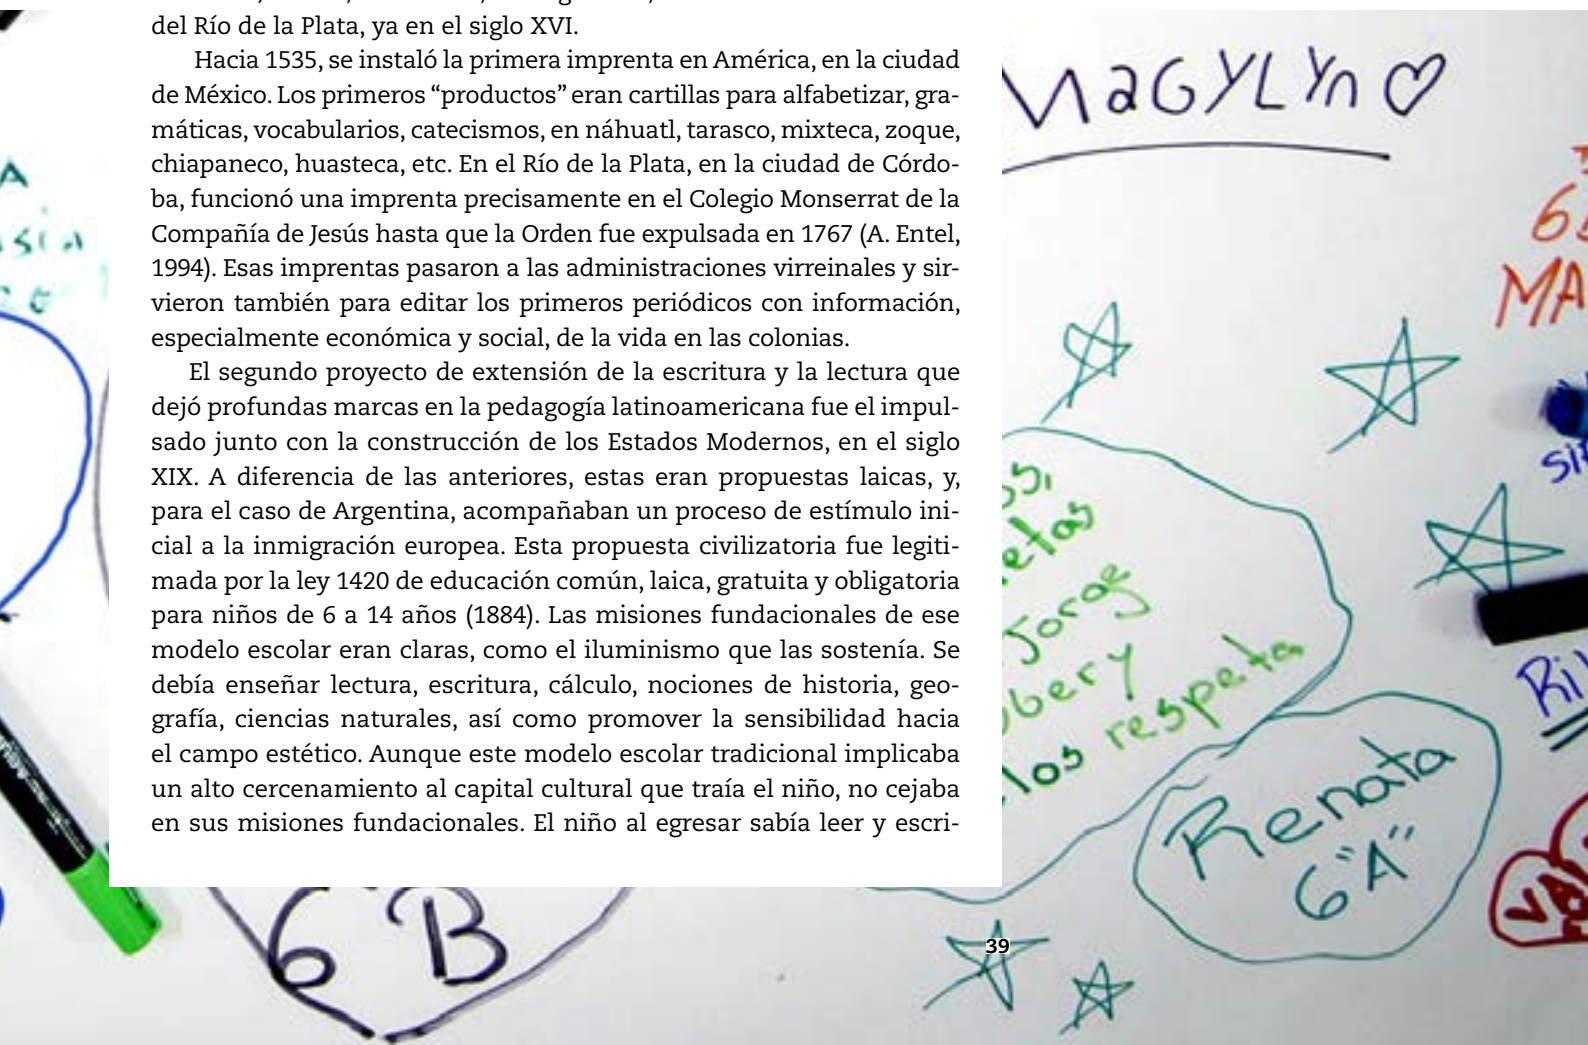 del Río de la Plata, ya en el siglo XVI.
Hacia 1535, se instaló la primera imprenta en América, en la ciudad
de México. Los primeros “productos” eran cartillas para alfabetizar, gra-
máticas, vocabularios, catecismos, en náhuatl, tarasco, mixteca, zoque,
chiapaneco, huasteca, etc. En el Río de la Plata, en la ciudad de Córdo-
ba, funcionó una imprenta precisamente en el Colegio Monserrat de la
Compañía de Jesús hasta que la Orden fue expulsada en 1767 (A. Entel,
1994). Esas imprentas pasaron a las administraciones virreinales y sir-
vieron también para editar los primeros periódicos con información,
especialmente económica y social, de la vida en las colonias.
El segundo proyecto de extensión de la escritura y la lectura que
dejó profundas marcas en la pedagogía latinoamericana fue el impul-
sado junto con la construcción de los Estados Modernos, en el siglo
XIX. A diferencia de las anteriores, estas eran propuestas laicas, y,
para el caso de Argentina, acompañaban un proceso de estímulo ini-
cial a la inmigración europea. Esta propuesta civilizatoria fue legiti-
mada por la ley 1420 de educación común, laica, gratuita y obligatoria
para niños de 6 a 14 años (1884). Las misiones fundacionales de ese
modelo escolar eran claras, como el iluminismo que las sostenía. Se
debía enseñar lectura, escritura, cálculo, nociones de historia, geo-
grafía, ciencias naturales, así como promover la sensibilidad hacia
el campo estético. Aunque este modelo escolar tradicional implicaba
un alto cercenamiento al capital cultural que traía el niño, no cejaba
en sus misiones fundacionales. El niño al egresar sabía leer y escri-
MaGYLYn
Jorge
los respeta
Renata
6"A"
6 B
39